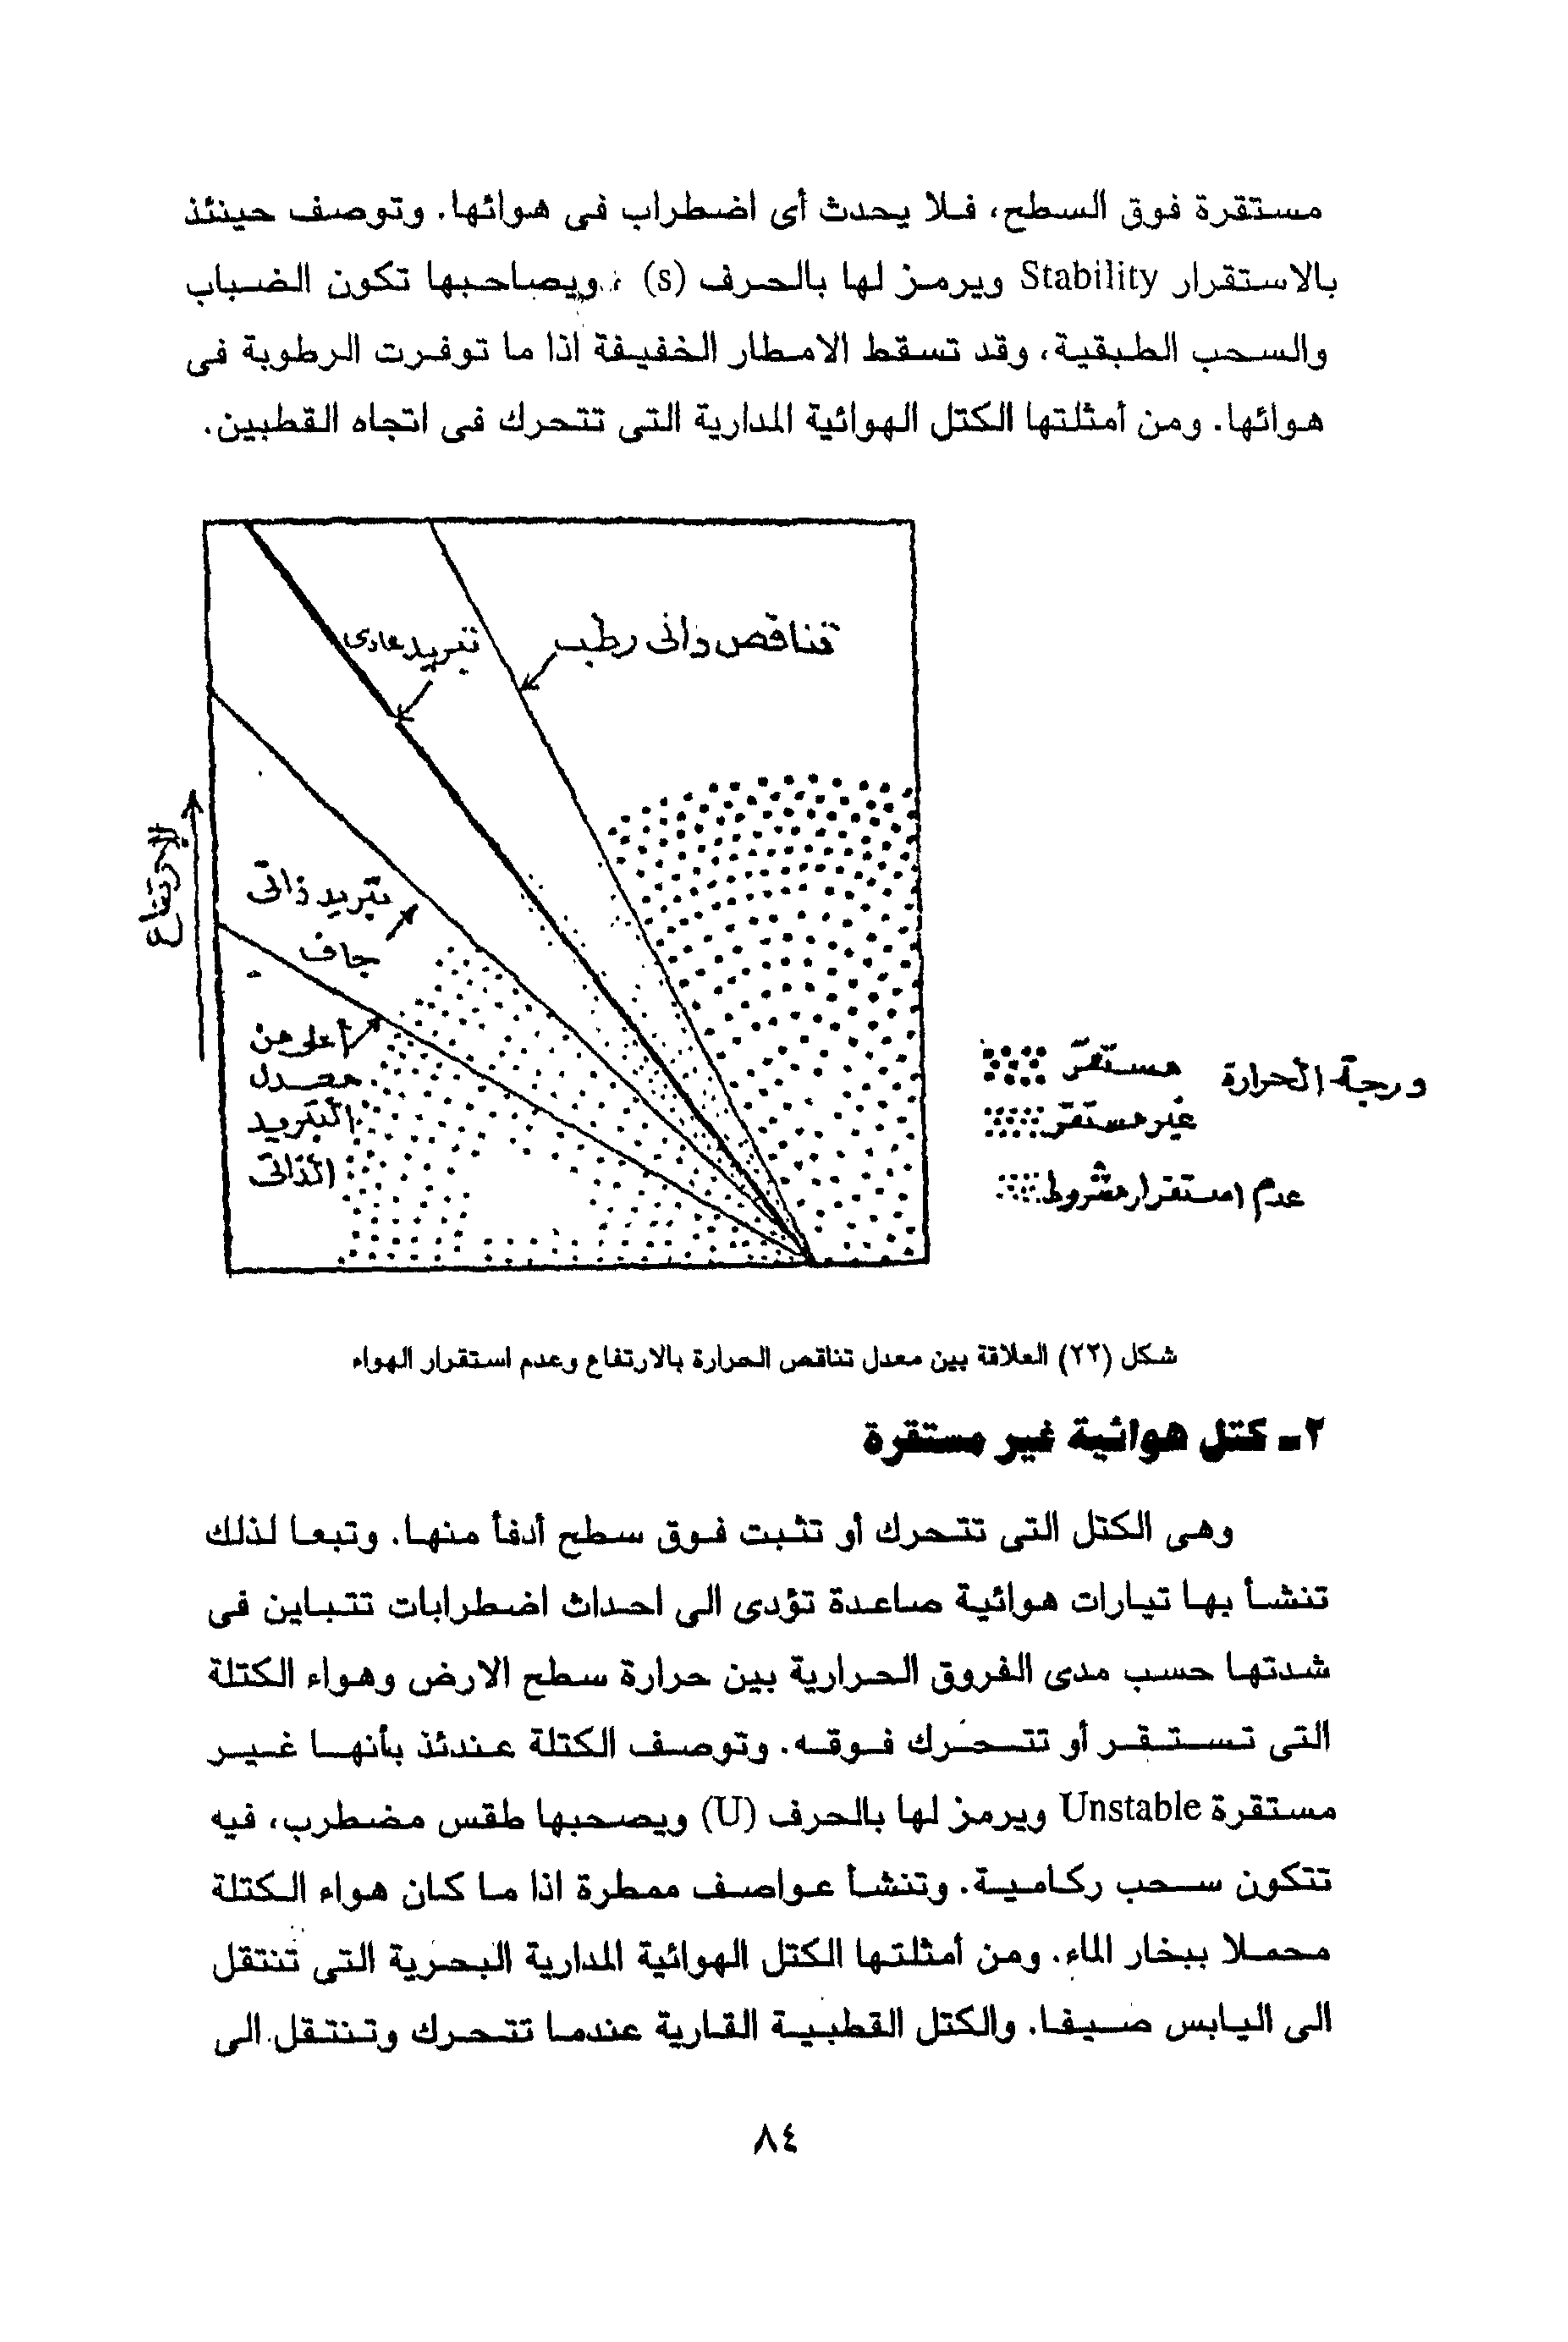 مستقرة فوق السطح، فلا يحدث أى اضطراب فى هوائها. وتوصف حينئذ
بالاستقرار Stability ويرمز لها بالحرف (s) ، ويصاحبها تكون الضباب
والسحب الطبقية، وقد تسقط الامطار الخفيفة اذا ما توفرت الرطوبة فى
هوائها. ومن أمثلتها الكتل الهوائية المدارية التى تتحرك فى اتجاه القطبين.
تناقص ذاتى رطب
تبريد عادى
الإرتفاع
تبريد ذاتى
جاف
أعلى من
معدل
التبريد
الذاتى
درجة الحرارة
مستقر
غير مستقر
عدم استقرار مشروط
شكل (٢٢) العلاقة بين معدل تناقص الحرارة بالارتفاع وعدم استقرار الهواء
٢ـ كتل هوائية غير مستقرة
وهى الكتل التى تتحرك أو تثبت فوق سطح أدفأ منها. وتبعا لذلك
تنشأ بها تيارات هوائية صاعدة تؤدى الى احداث اضطرابات تتباين فى
شدتها حسب مدى الفروق الحرارية بين حرارة سطح الارض وهواء الكتلة
التى تستقر أو تتحرك فوقه. وتوصف الكتلة عندئذ بأنها غير
مستقرة Unstable ويرمز لها بالحرف (U) ويصحبها طقس مضطرب، فيه
تتكون سحب ركامية. وتنشأ عواصف ممطرة اذا ما كان هواء الكتلة
محملا ببخار الماء. ومن أمثلتها الكتل الهوائية المدارية البحرية التى تنتقل
الى اليابس صيفا. والكتل القطبية القارية عندما تتحرك وتنتقل الى
٨٤